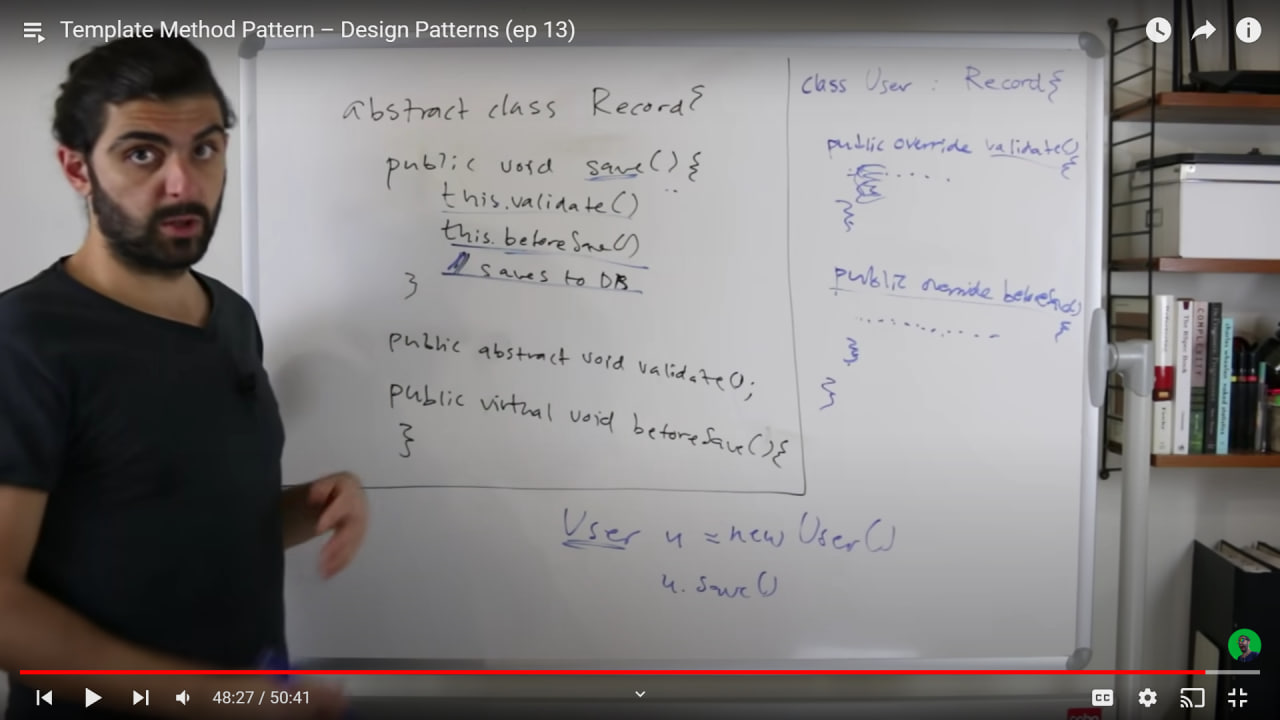 Template Method Pattern – Design Patterns (ep 13)
abstract class Record{
public void save(){
this.validate()
this.beforeSave()
// saves to DB
}
public abstract void validate();
public virtual void beforeSave(){
}
class User : Record{
public override validate()
{
}
public override beforeSave()
{
}
}
User u = new User()
u.save()
COMPLEXITY
48:27 / 50:41
CC